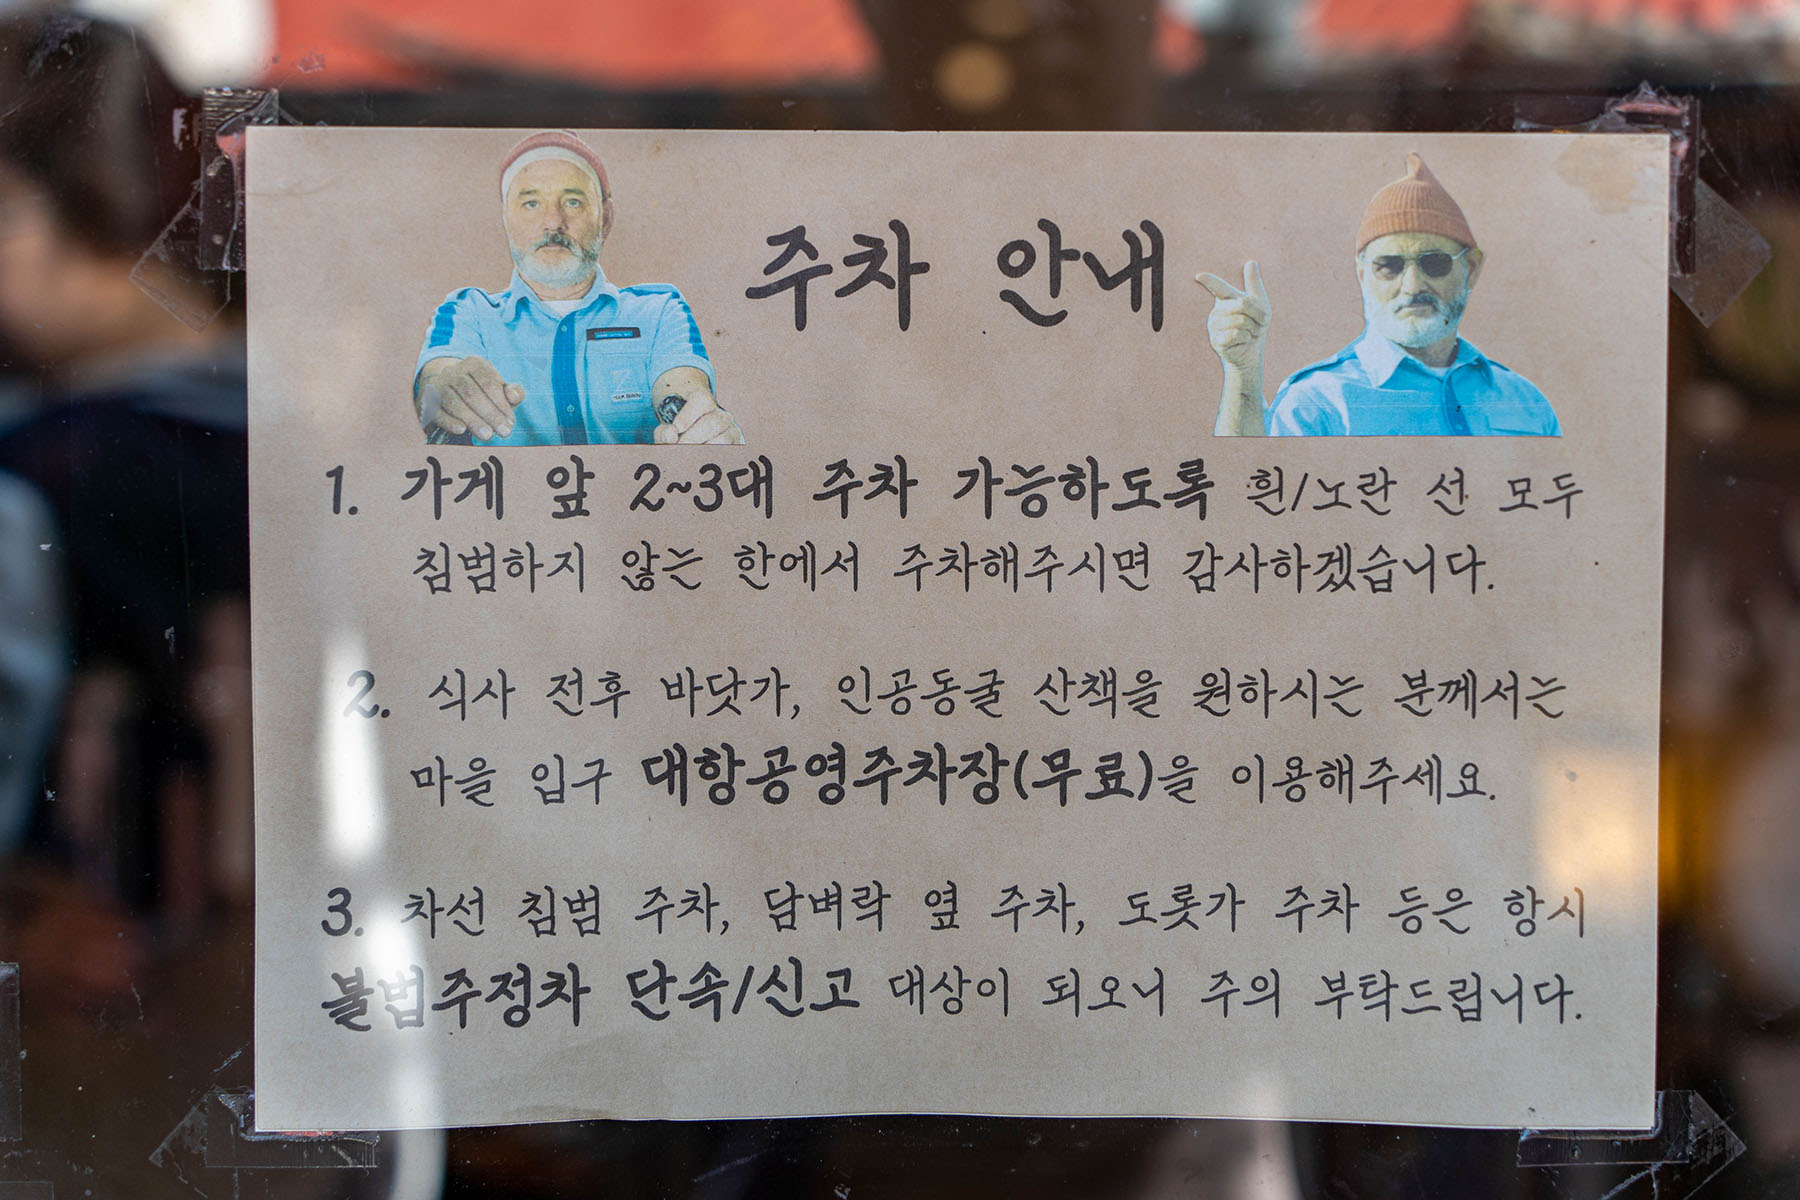 주차 안내
1. 가게 앞 2~3대 주차 가능하도록 흰/노란 선 모두
침범하지 않는 한에서 주차해주시면 감사하겠습니다.
2. 식사 전후 바닷가, 인공동굴 산책을 원하시는 분께서는
마을 입구 대항공영주차장(무료)을 이용해주세요.
3. 차선 침범 주차, 담벼락 옆 주차, 도롯가 주차 등은 항시
불법주정차 단속/신고 대상이 되오니 주의 부탁드립니다.